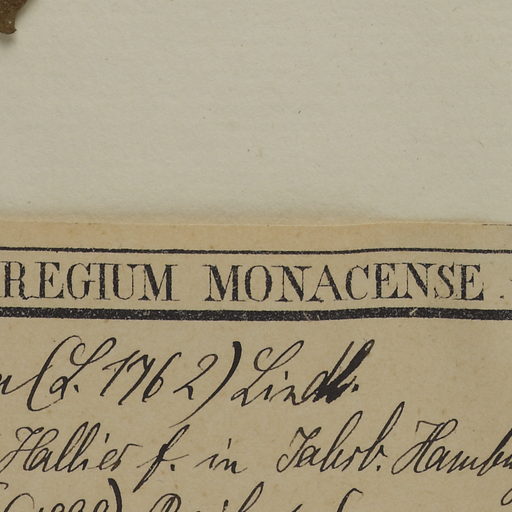 REGIUM MONACENSE.
(L. 1762) Lindl.
Hallier f. in Jahrb. Hambu